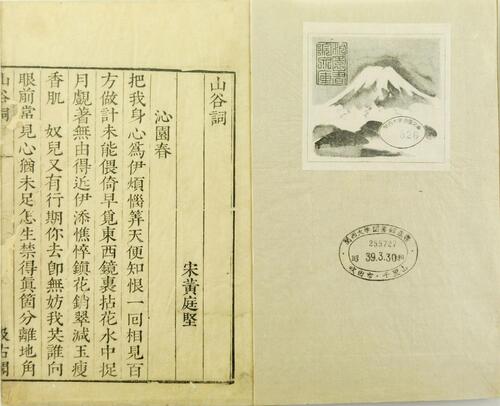 山谷詞
宋黃庭堅
沁園春
把我身心爲伊煩惱筭天便知恨一回相見百
方做計未能偎倚早覓東西鏡裏拈花水中捉
月覷著無由得近伊添憔悴鎮花銷翠減玉瘦
香肌 奴兒又有行期你去卽無妨我誰向
眼前常見心猶未足怎生禁得眞箇分離地角
山谷詞
汲古閣
255727
昭和 39.3.30
吹田市・千里山